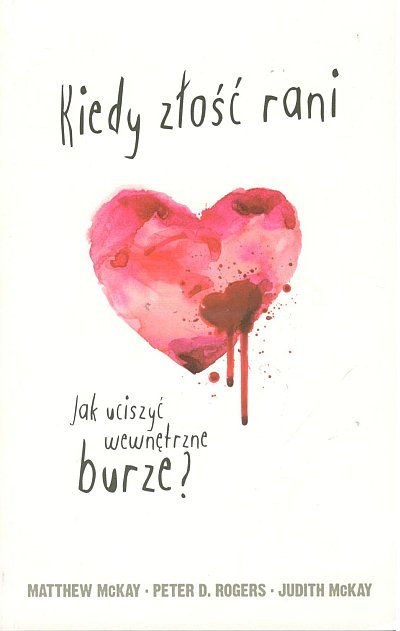 Kiedy złość rani
Jak uciszyć
wewnętrzne
burze?
MATTHEW McKAY · PETER D. ROGERS · JUDITH McKAY